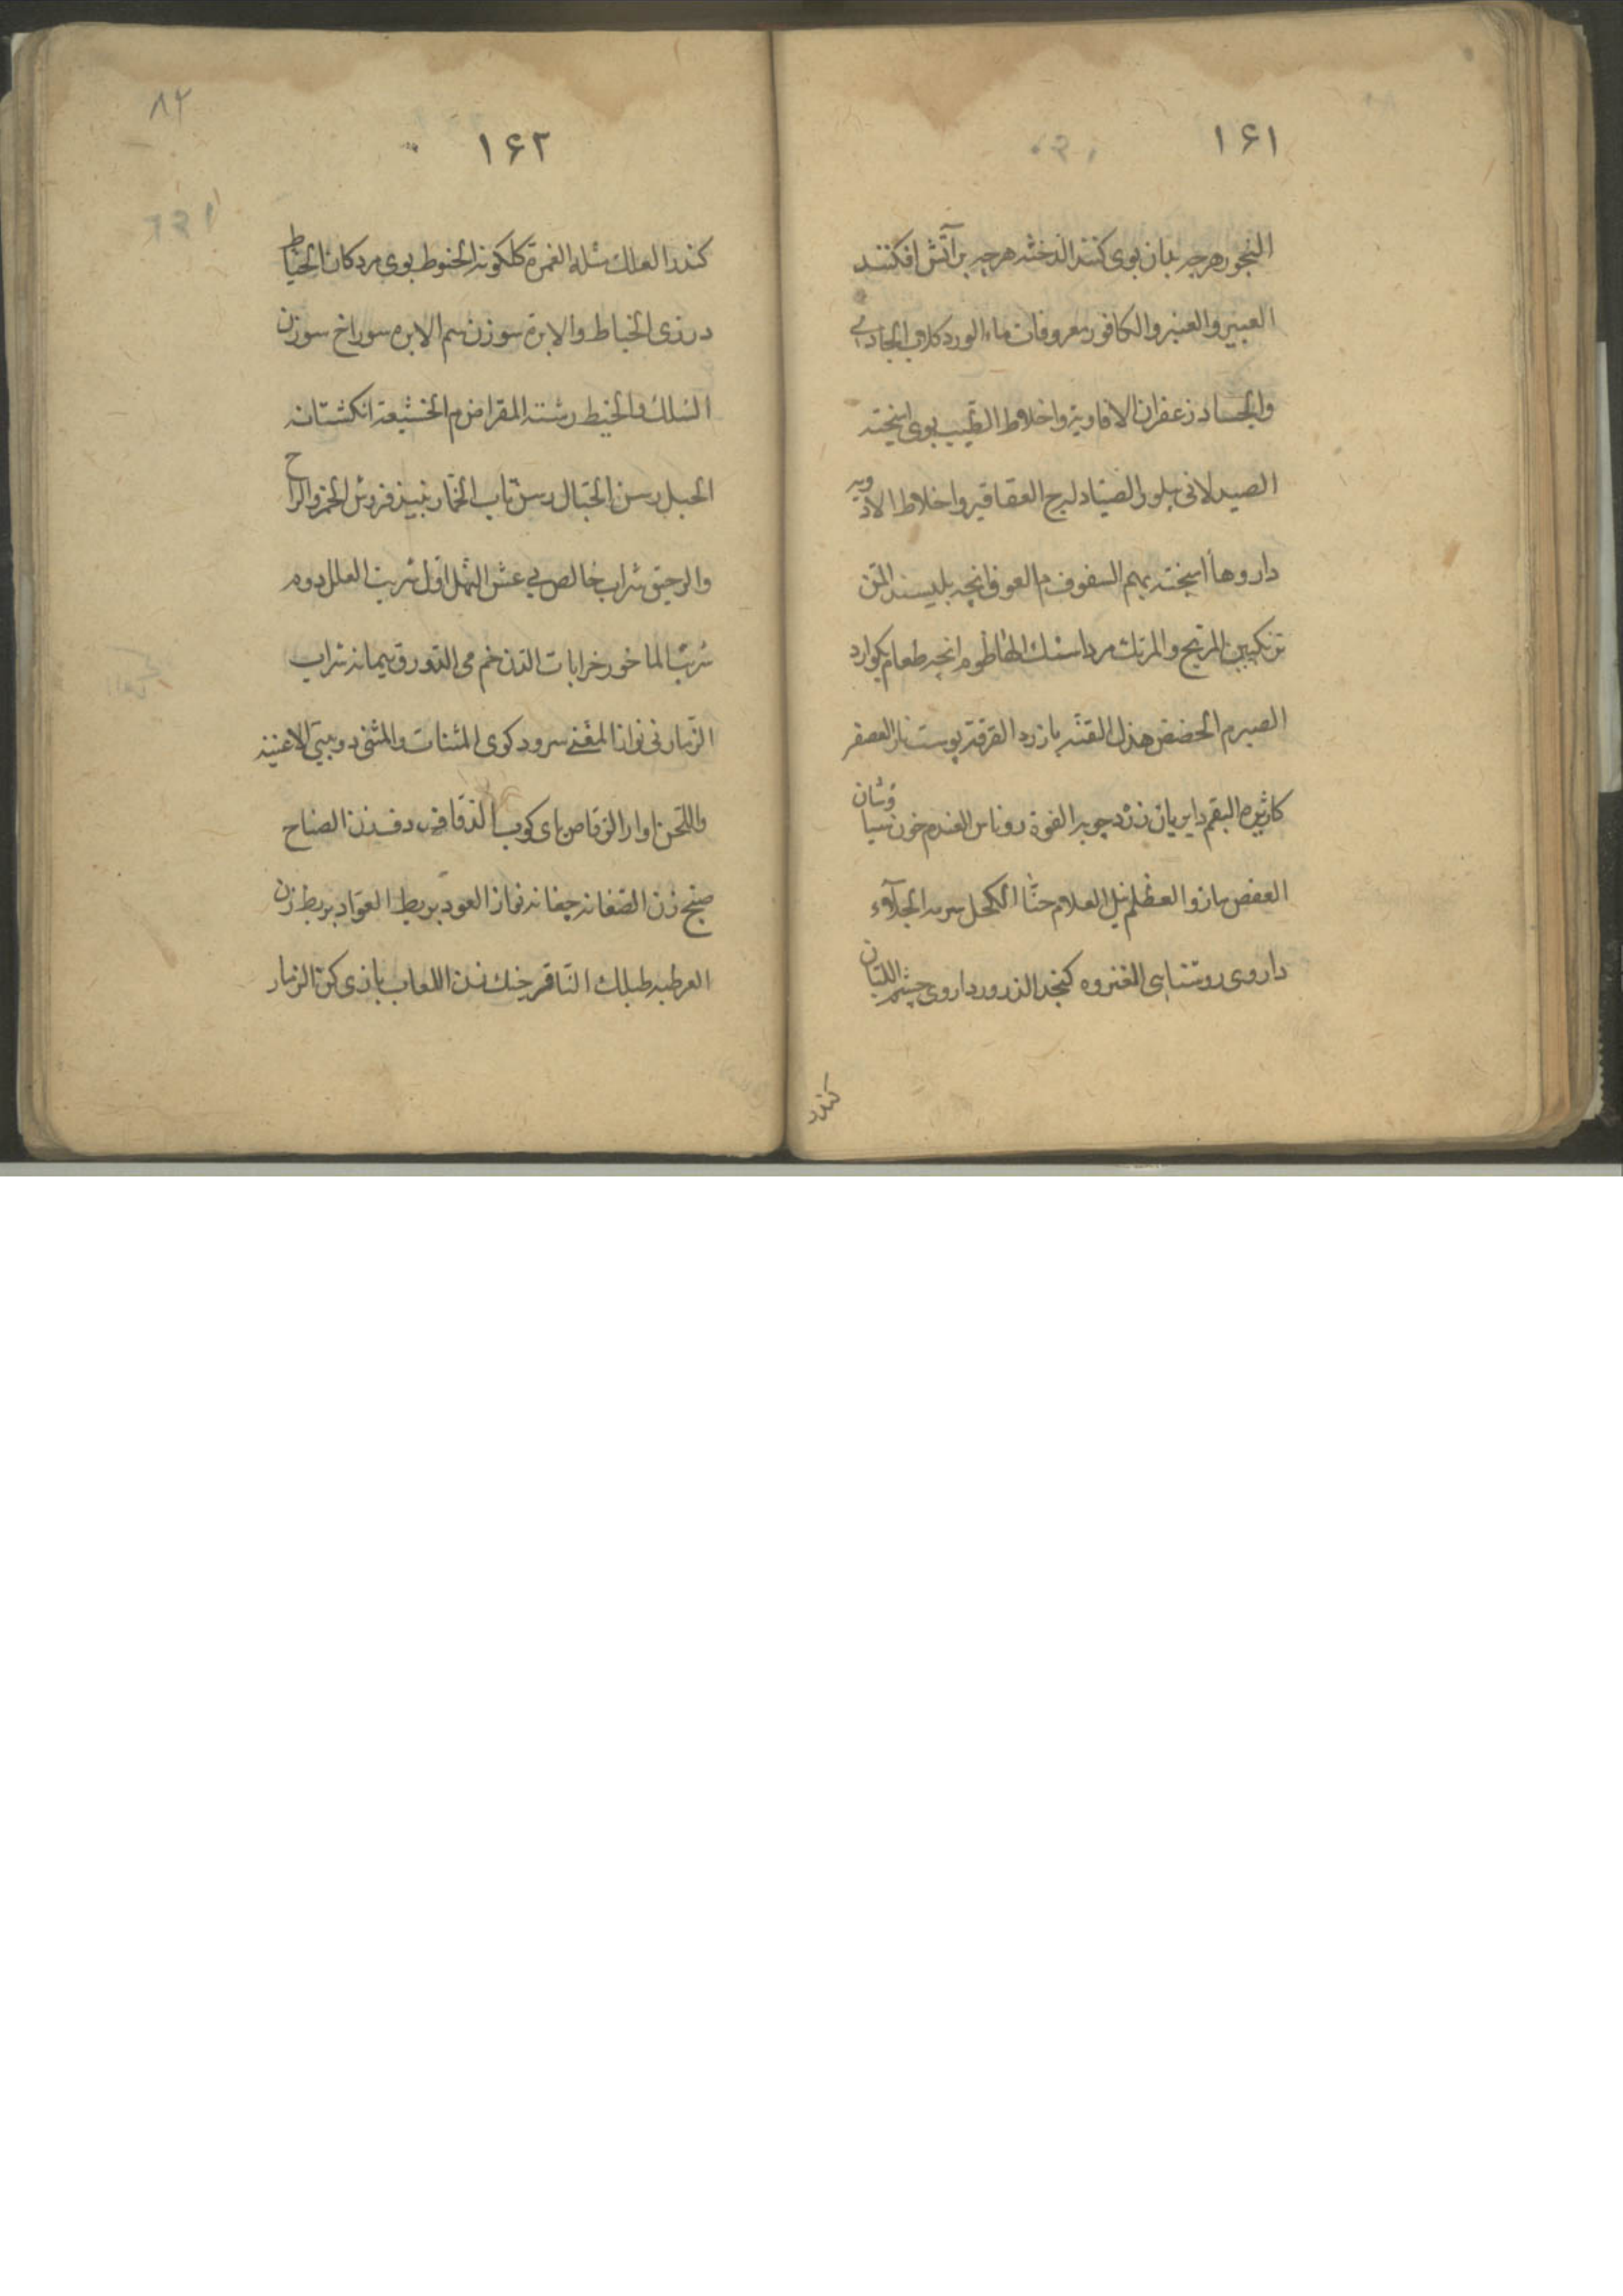 ۱۶۱
البخور هرچه بدان بوی کنند الدخنه هرچه بر آتش افکنند
العبیر والعنبر والکافور معروفات ماء الورد کلاب الجادی
والجساد زعفران الافاویه واخلاط الطیب بوی امیخته
الصیدلانی بیلور الصیاد لیرج العقاقیر واخلاط الادویه
داروها امیخته بهم السفوف م العوق انچه بلیسند المن
ترنکبین المرتج والمرتك مرداسنك الهاطوم انچه طعام بکوارد
الصبر م الحضض هذل القنه بازرد القرفه پوست نار العصفر
کاژیره البقم دایربان زرد چوبه الفوة روناس العندم خون سیاوشان
العفص مازو العظلم نیل العلام حنّا الکحل سرمه الجلاء
داروی روشنایی العنزوه کنجد الذرور داروی چشم اللبان
کندر
۱۶۲
۸۲
کندر العلك مثله الغمرة کلکونه الحنوط بوی مردکان الخیاط
درزی الخیاط والابرة سوزن سم الابره سوراخ سوزن
السلك والخیط رشته المقراض م الخشیعة انکشتانه
الحبل رسن الحبّال رسن تاب الخمّار نبیذ فروش الخمر والراح
والرحیق شراب خالص بی غش النهل اول شربت العلل دوم
شربت الماخور خرابات الدن خم می الدورق پیمانه شراب
الزمار نی نواز المغنی سرود کوی المثنات والمثنی دو بیتی الاغنیه
واللحن اواز الرقاص پای کوب الدفاف دف زن الصناج
صنج زن الصغانه چغانه نواز العود بربط العوّاد بربط زن
العرطبه طبلك الناقر چنك زن اللعاب بازی کن الزمار